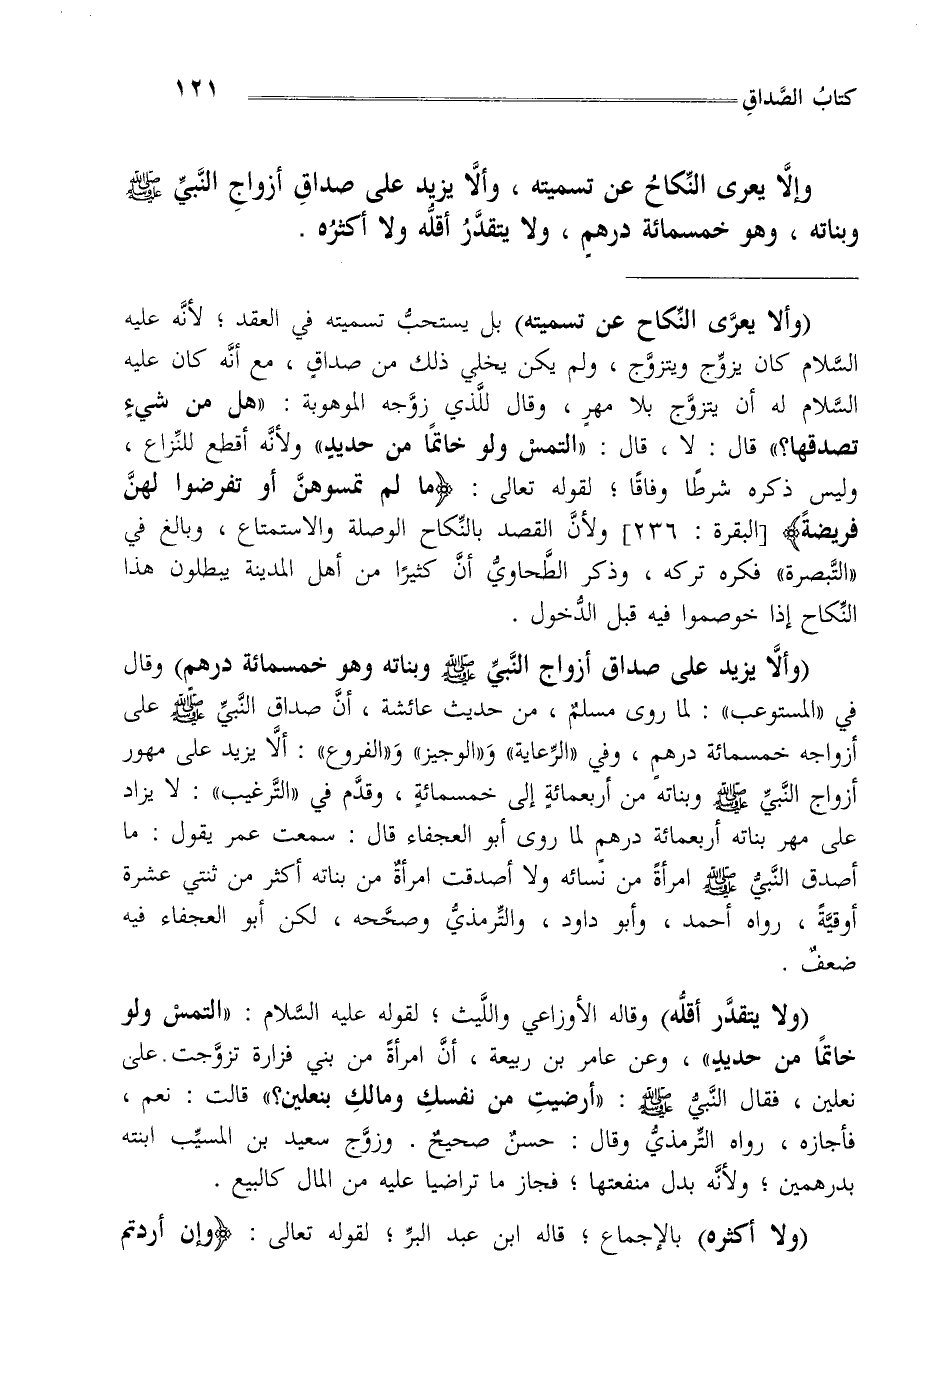 كتابُ الصَّداقِ ١٢١
وإلَّا يعرى النِّكاحُ عن تسميته ، وألَّا يزيد على صداقِ أزواجِ النَّبيِّ ﷺ
وبناته ، وهو خمسمائة درهمٍ ، ولا يتقدَّرُ أقلُّه ولا أكثرُه .
(وألا يعرَّى النِّكاح عن تسميته) بل يستحبُّ تسميته في العقد ؛ لأنَّه عليه
السَّلام كان يزوِّج ويتزوَّج ، ولم يكن يخلي ذلك من صداقٍ ، مع أنَّه كان عليه
السَّلام له أن يتزوَّج بلا مهرٍ ، وقال للَّذي زوَّجه الموهوبة : «هل من شيءٍ
تصدقها؟» قال : لا ، قال : «التمسْ ولو خاتمًا من حديدٍ» ولأنَّه أقطع للنِّزاع ،
وليس ذكره شرطًا وفاقًا ؛ لقوله تعالى : ﴿ما لم تمسوهنَّ أو تفرضوا لهنَّ
فريضةً﴾ [البقرة : ٢٣٦] ولأنَّ القصد بالنِّكاح الوصلة والاستمتاع ، وبالغ في
«التَّبصرة» فكره تركه ، وذكر الطَّحاويُّ أنَّ كثيرًا من أهل المدينة يبطلون هذا
النِّكاح إذا خوصموا فيه قبل الدُّخول .
(وألَّا يزيد على صداق أزواج النَّبيِّ ﷺ وبناته وهو خمسمائة درهمٍ) وقال
في «المستوعب» : لما روى مسلمٌ ، من حديث عائشة ، أنَّ صداق النَّبيِّ ﷺ على
أزواجه خمسمائة درهمٍ ، وفي «الرِّعاية» وَ«الوجيز» وَ«الفروع» : ألَّا يزيد على مهور
أزواج النَّبيِّ ﷺ وبناته من أربعمائةٍ إلى خمسمائةٍ ، وقدَّم في «التَّرغيب» : لا يزاد
على مهر بناته أربعمائة درهمٍ لما روى أبو العجفاء قال : سمعت عمر يقول : ما
أصدق النَّبيُّ ﷺ امرأةً من نسائه ولا أصدقت امرأةٌ من بناته أكثر من ثنتي عشرة
أوقيَّةً ، رواه أحمد ، وأبو داود ، والتِّرمذيُّ وصحَّحه ، لكن أبو العجفاء فيه
ضعفٌ .
(ولا يتقدَّر أقلُّه) وقاله الأوزاعي واللَّيث ؛ لقوله عليه السَّلام : «التمسْ ولو
خاتمًا من حديدٍ» ، وعن عامر بن ربيعة ، أنَّ امرأةً من بني فزارة تزوَّجت على
نعلين ، فقال النَّبيُّ ﷺ : «أرضيتِ من نفسكِ ومالكِ بنعلين؟» قالت : نعم ،
فأجازه ، رواه التِّرمذيُّ وقال : حسنٌ صحيحٌ . وزوَّج سعيد بن المسيِّب ابنته
بدرهمين ؛ ولأنَّه بدل منفعتها ؛ فجاز ما تراضيا عليه من المال كالبيع .
(ولا أكثره) بالإجماع ؛ قاله ابن عبد البرِّ ؛ لقوله تعالى : ﴿وإن أردتم